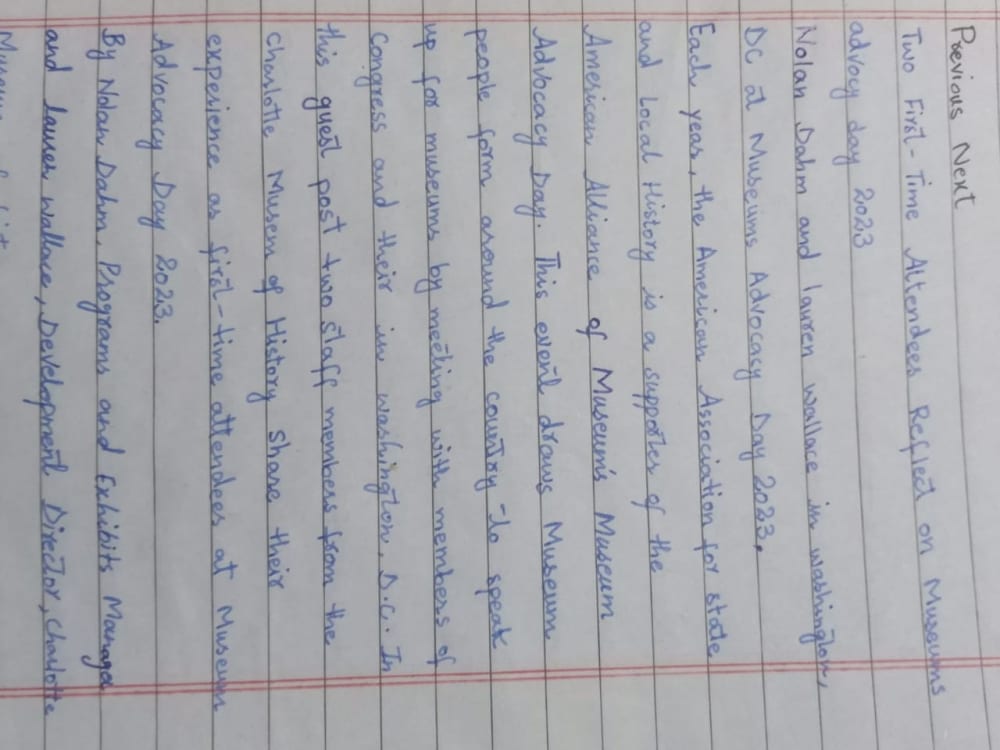 Previous Next
Two First-Time Attendees Reflect on Museums
advocy day 2023
Nolan Dahm and lauren wallace in washington,
DC at Museums Advocacy Day 2023,
Each year, the American Association for state
and Local History is a supporter of the
American Alliance of Museum's Museum
Advocacy Day. This event draws Museum
people form around the country to speak
up for museums by meeting with members of
congress and their in washington, D.C. In
this guest post two staff members from the
charlotte Musem of History share their
experience as first-time attendees at Museum
Advocacy Day 2023.
By Nolan Dahm, Programs and Exhibits Manager
and lauren wallace, Development Director, charlotte
Museum of